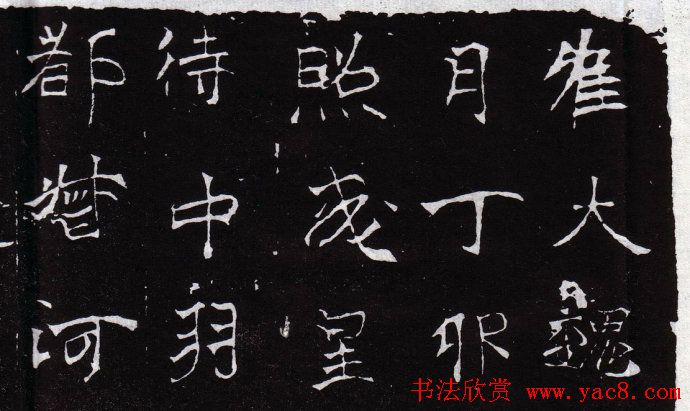 惟大魏
月丁卯
照成皇
待中羽
都督河
书法欣赏 www.yac8.com